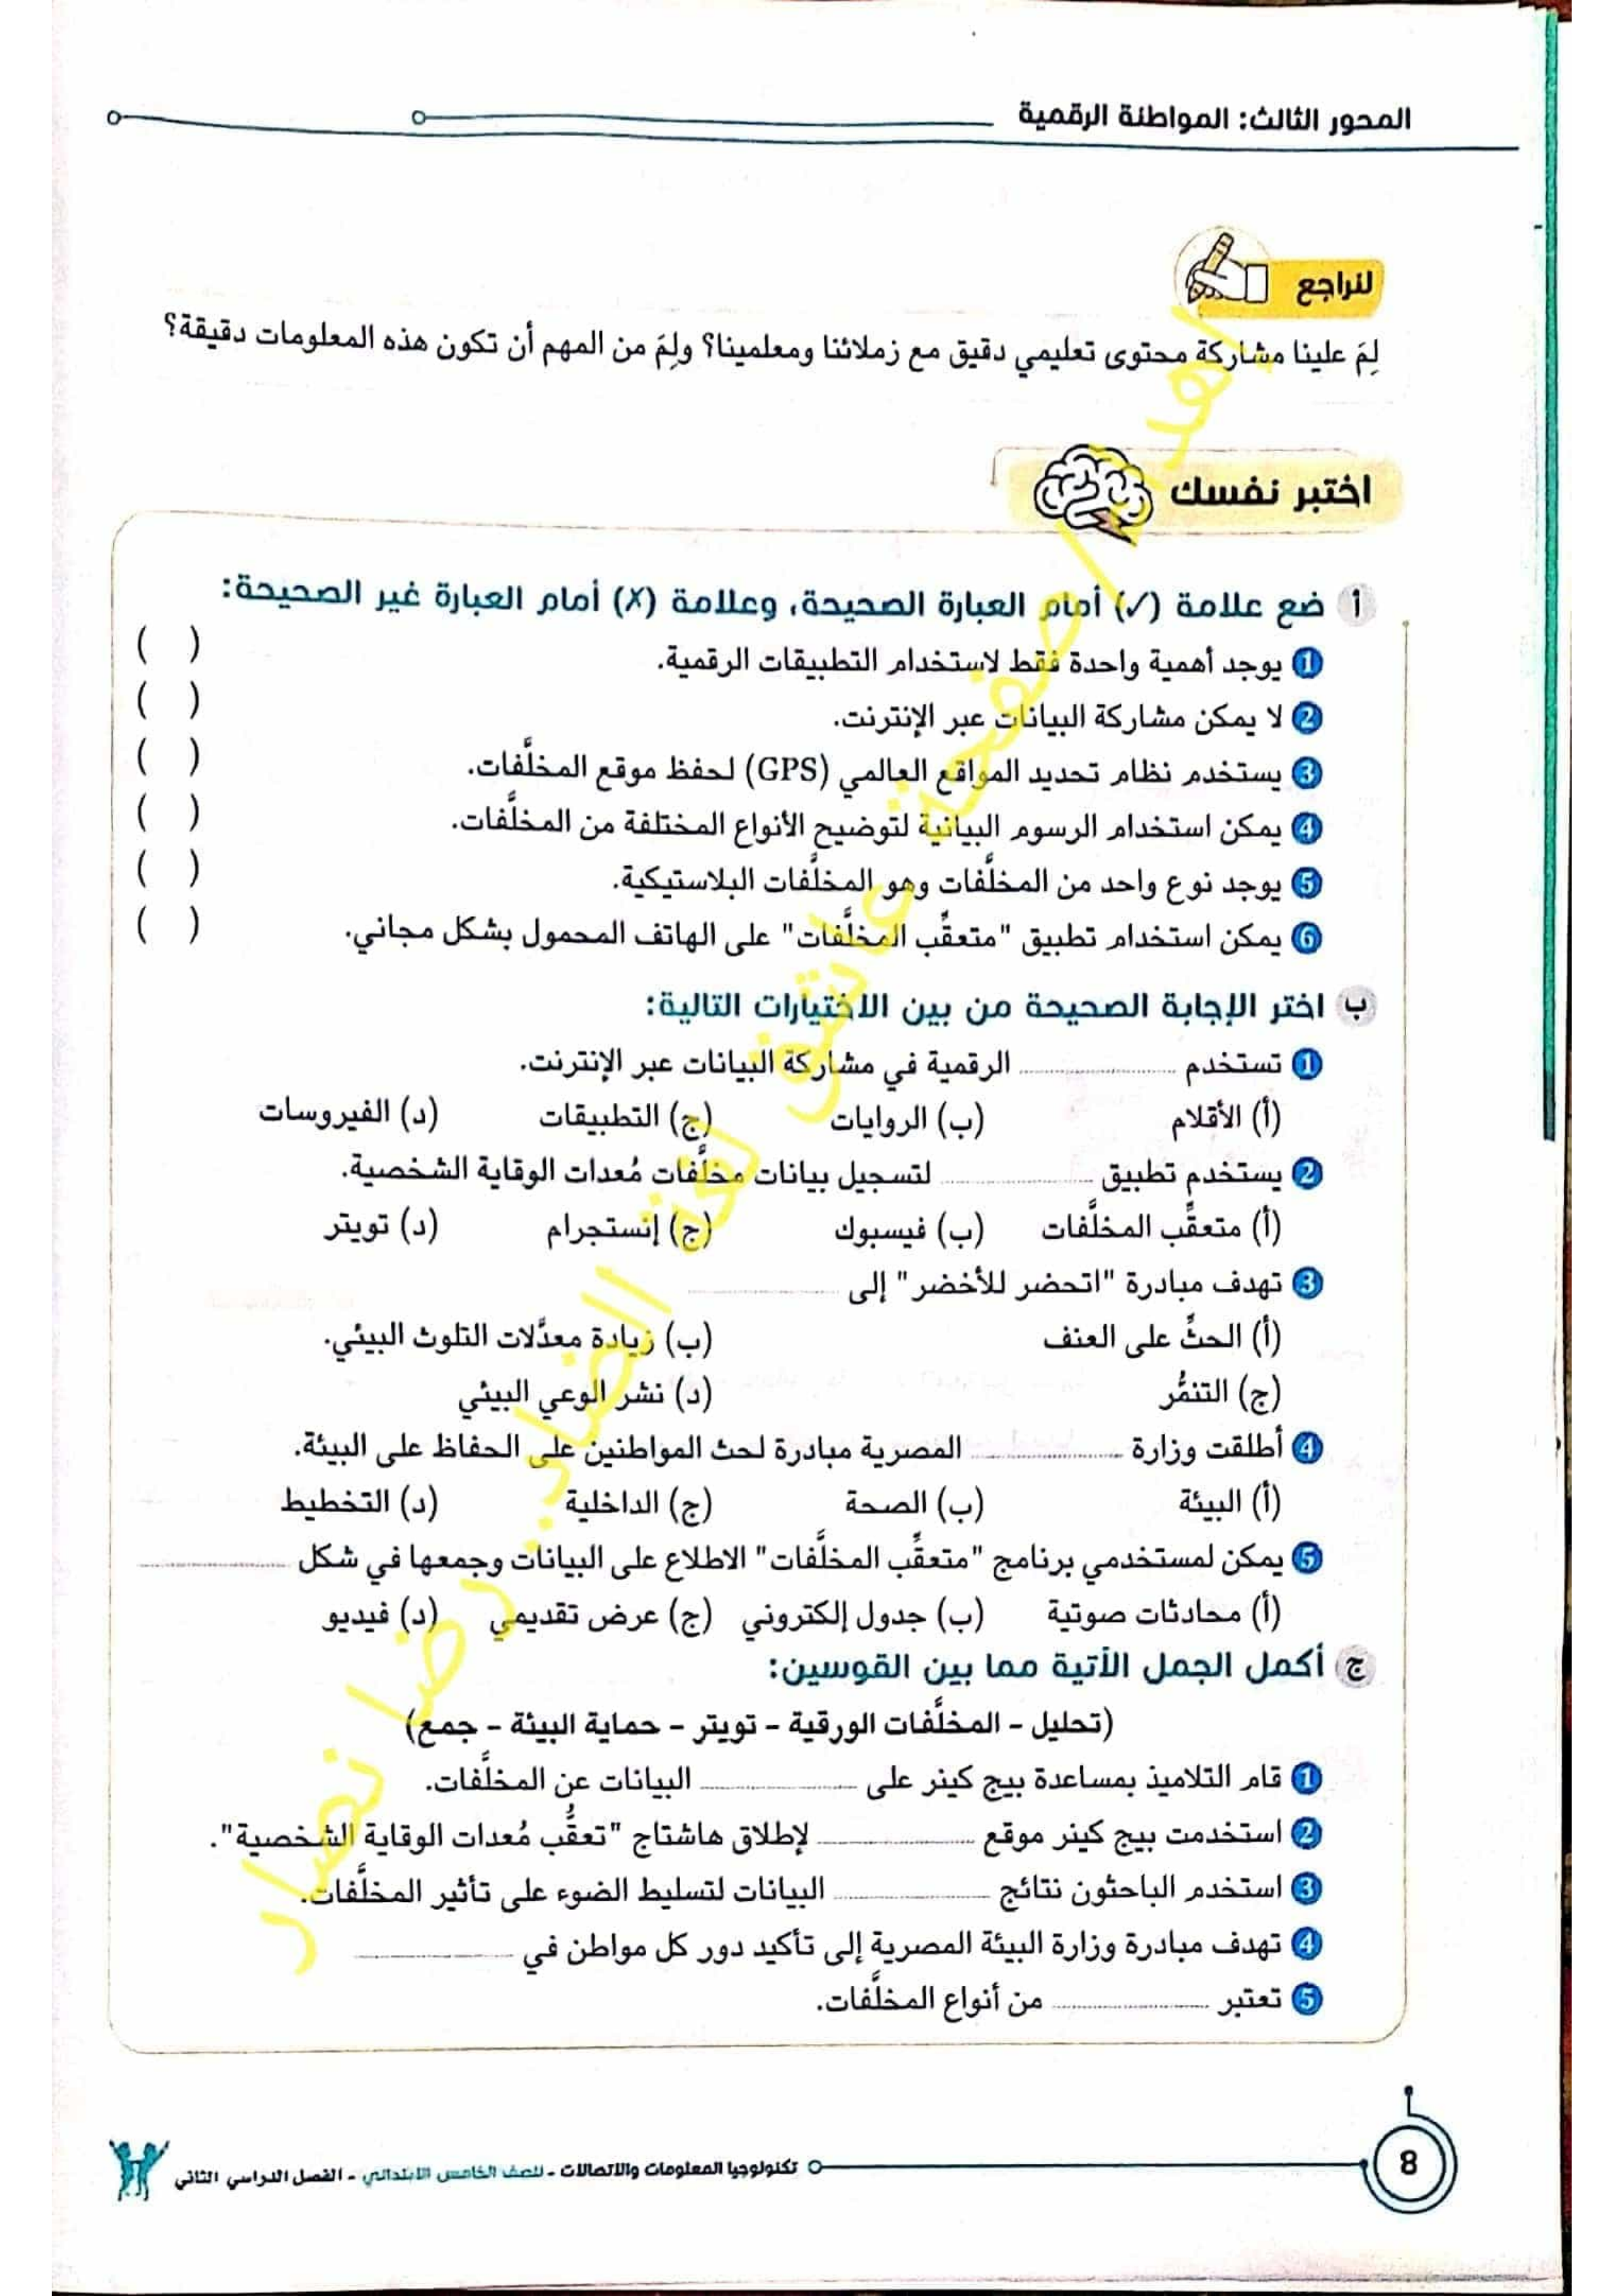 المحور الثالث: المواطنة الرقمية
لنراجع
لِمَ علينا مشاركة محتوى تعليمي دقيق مع زملائنا ومعلمينا؟ ولِمَ من المهم أن تكون هذه المعلومات دقيقة؟
اختبر نفسك
أ ضع علامة (✓) أمام العبارة الصحيحة، وعلامة (✗) أمام العبارة غير الصحيحة:
1 يوجد أهمية واحدة فقط لاستخدام التطبيقات الرقمية. ( )
2 لا يمكن مشاركة البيانات عبر الإنترنت. ( )
3 يستخدم نظام تحديد المواقع العالمي (GPS) لحفظ موقع المخلَّفات. ( )
4 يمكن استخدام الرسوم البيانية لتوضيح الأنواع المختلفة من المخلَّفات. ( )
5 يوجد نوع واحد من المخلَّفات وهو المخلَّفات البلاستيكية. ( )
6 يمكن استخدام تطبيق "متعقِّب المخلَّفات" على الهاتف المحمول بشكل مجاني. ( )
ب اختر الإجابة الصحيحة من بين الاختيارات التالية:
1 تستخدم ........................ الرقمية في مشاركة البيانات عبر الإنترنت.
(أ) الأقلام (ب) الروايات (ج) التطبيقات (د) الفيروسات
2 يستخدم تطبيق ........................ لتسجيل بيانات مخلَّفات مُعدات الوقاية الشخصية.
(أ) متعقِّب المخلَّفات (ب) فيسبوك (ج) إنستجرام (د) تويتر
3 تهدف مبادرة "اتحضر للأخضر" إلى ........................
(أ) الحثِّ على العنف (ب) زيادة معدَّلات التلوث البيئي.
(ج) التنمُّر (د) نشر الوعي البيئي
4 أطلقت وزارة ........................ المصرية مبادرة لحث المواطنين على الحفاظ على البيئة.
(أ) البيئة (ب) الصحة (ج) الداخلية (د) التخطيط
5 يمكن لمستخدمي برنامج "متعقِّب المخلَّفات" الاطلاع على البيانات وجمعها في شكل ........................
(أ) محادثات صوتية (ب) جدول إلكتروني (ج) عرض تقديمي (د) فيديو
ج أكمل الجمل الآتية مما بين القوسين:
(تحليل - المخلَّفات الورقية - تويتر - حماية البيئة - جمع)
1 قام التلاميذ بمساعدة بيج كينر على ........................ البيانات عن المخلَّفات.
2 استخدمت بيج كينر موقع ........................ لإطلاق هاشتاج "تعقُّب مُعدات الوقاية الشخصية".
3 استخدم الباحثون نتائج ........................ البيانات لتسليط الضوء على تأثير المخلَّفات.
4 تهدف مبادرة وزارة البيئة المصرية إلى تأكيد دور كل مواطن في ........................
5 تعتبر ........................ من أنواع المخلَّفات.
إهداء/ صفحة عاشق لغة الضاد.. رضا نصار
8
تكنولوجيا المعلومات والاتصالات - للصف الخامس الابتدائي - الفصل الدراسي الثاني